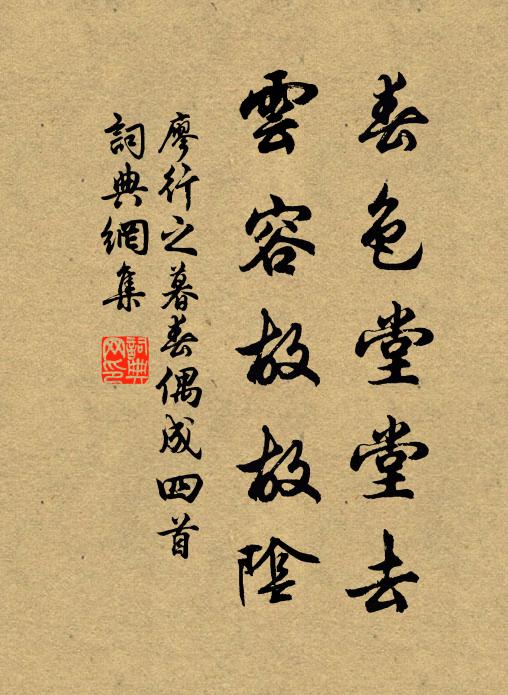 春色堂堂去
雲容故故陰
廖行之暮春偶成四首
詞典網集
詞典
网印